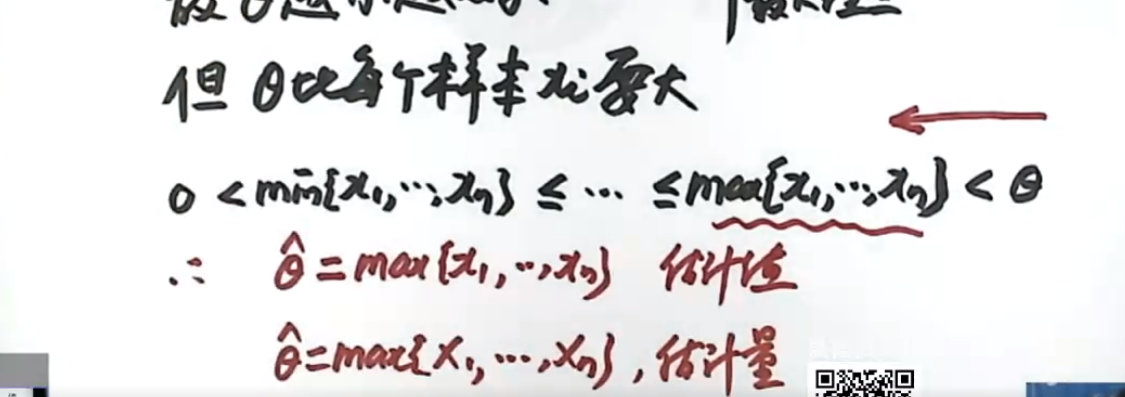 但 θ比每个样本xᵢ要大
0 < min{x₁,…,xₙ} ≤ … ≤ max{x₁,…,xₙ} < θ
∴ θ̂ = max{x₁,…,xₙ} 估计值
θ̂ = max{X₁,…,Xₙ}, 估计量